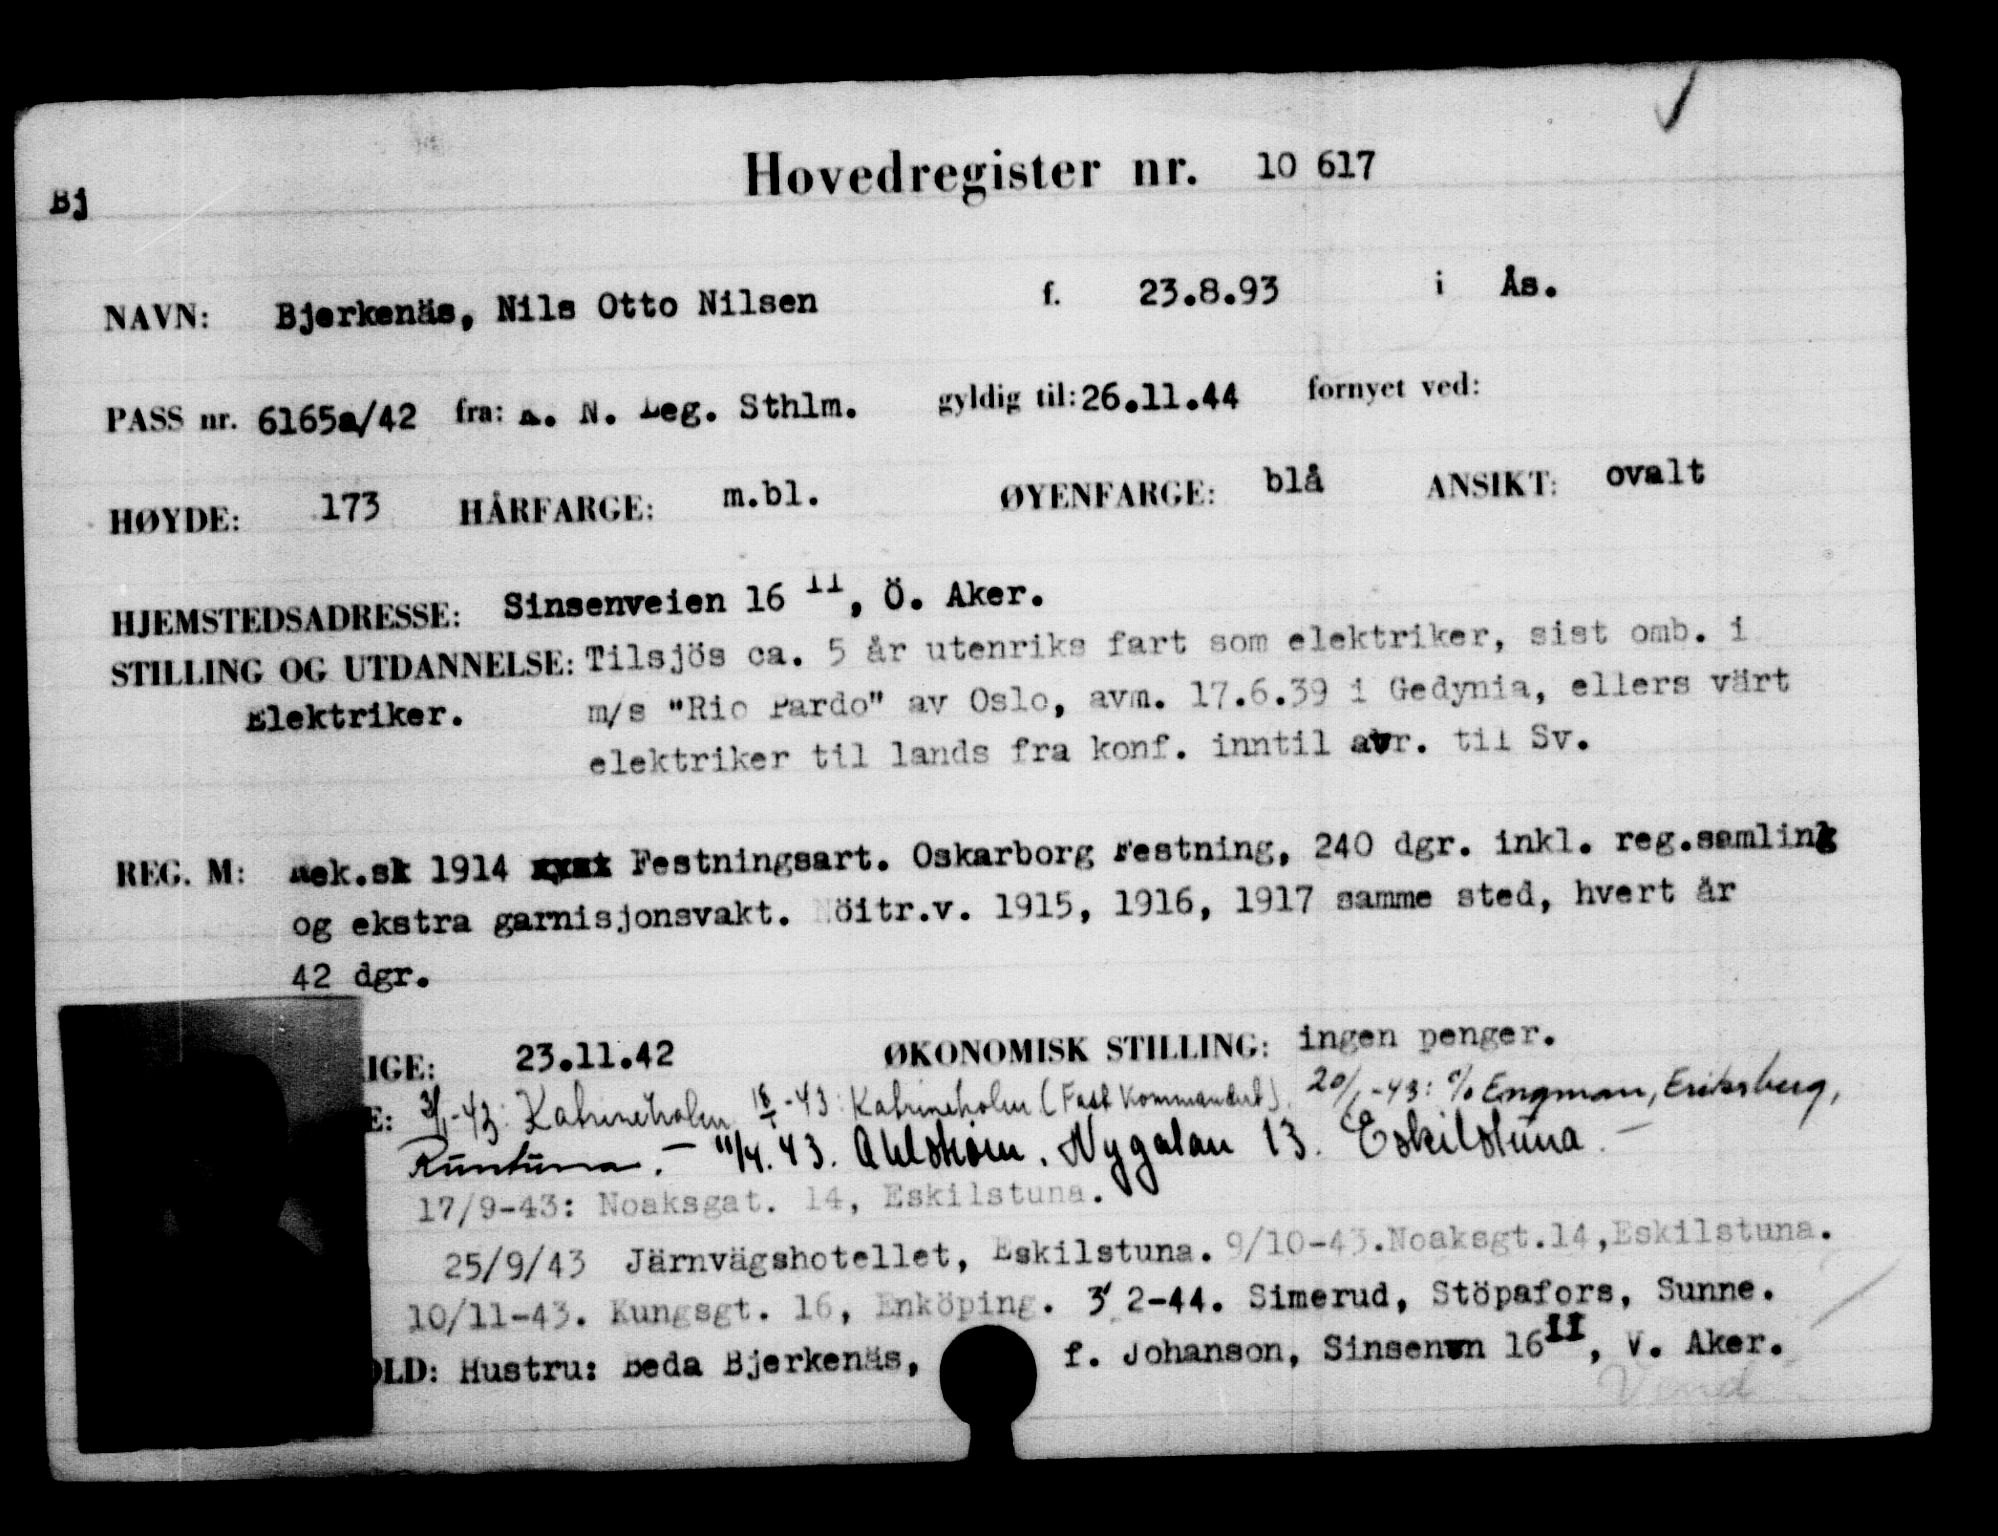 Bj
Hovedregister nr. 10 617
NAVN: Bjerkenäs, Nils Otto Nilsen f. 23.8.93 i Ås.
PASS nr. 6165a/42 fra: K. N. Leg. Sthlm. gyldig til: 26.11.44 fornyet ved:
HØYDE: 173 HÅRFARGE: m.bl. ØYENFARGE: blå ANSIKT: ovalt
HJEMSTEDSADRESSE: Sinsenveien 16 II, Ö. Aker.
STILLING OG UTDANNELSE: Tilsjös ca. 5 år utenriks fart som elektriker, sist omb. i
Elektriker. m/s "Rio Pardo" av Oslo, avm. 17.6.39 i Gedynia, ellers värt
elektriker til lands fra konf. inntil avr. til Sv.
REG. M: Rek.sk 1914 Festningsart. Oskarborg Festning, 240 dgr. inkl. reg.samling
og ekstra garnisjonsvakt. Nöitr.v. 1915, 1916, 1917 samme sted, hvert år
42 dgr.
IGE: 23.11.42 ØKONOMISK STILLING: ingen penger.
E: 3/1-43: Katrineholm 18/1-43: Katrineholm (Fast Kommandert). 20/1-43: c/o Engman, Eriksberg,
Runtuna. — 11/4.43. Ahlström. Nygatan 13. Eskilstuna. —
17/9-43: Noaksgat. 14, Eskilstuna.
25/9/43 Järnvägshotellet, Eskilstuna. 9/10-43.Noaksgt.14,Eskilstuna.
10/11-43. Kungsgt. 16, Enköping. 3/2-44. Simerud, Stöpafors, Sunne.
OLD: Hustru: Beda Bjerkenäs, f. Johanson, Sinsenvn 16 II, V. Aker.
Vend